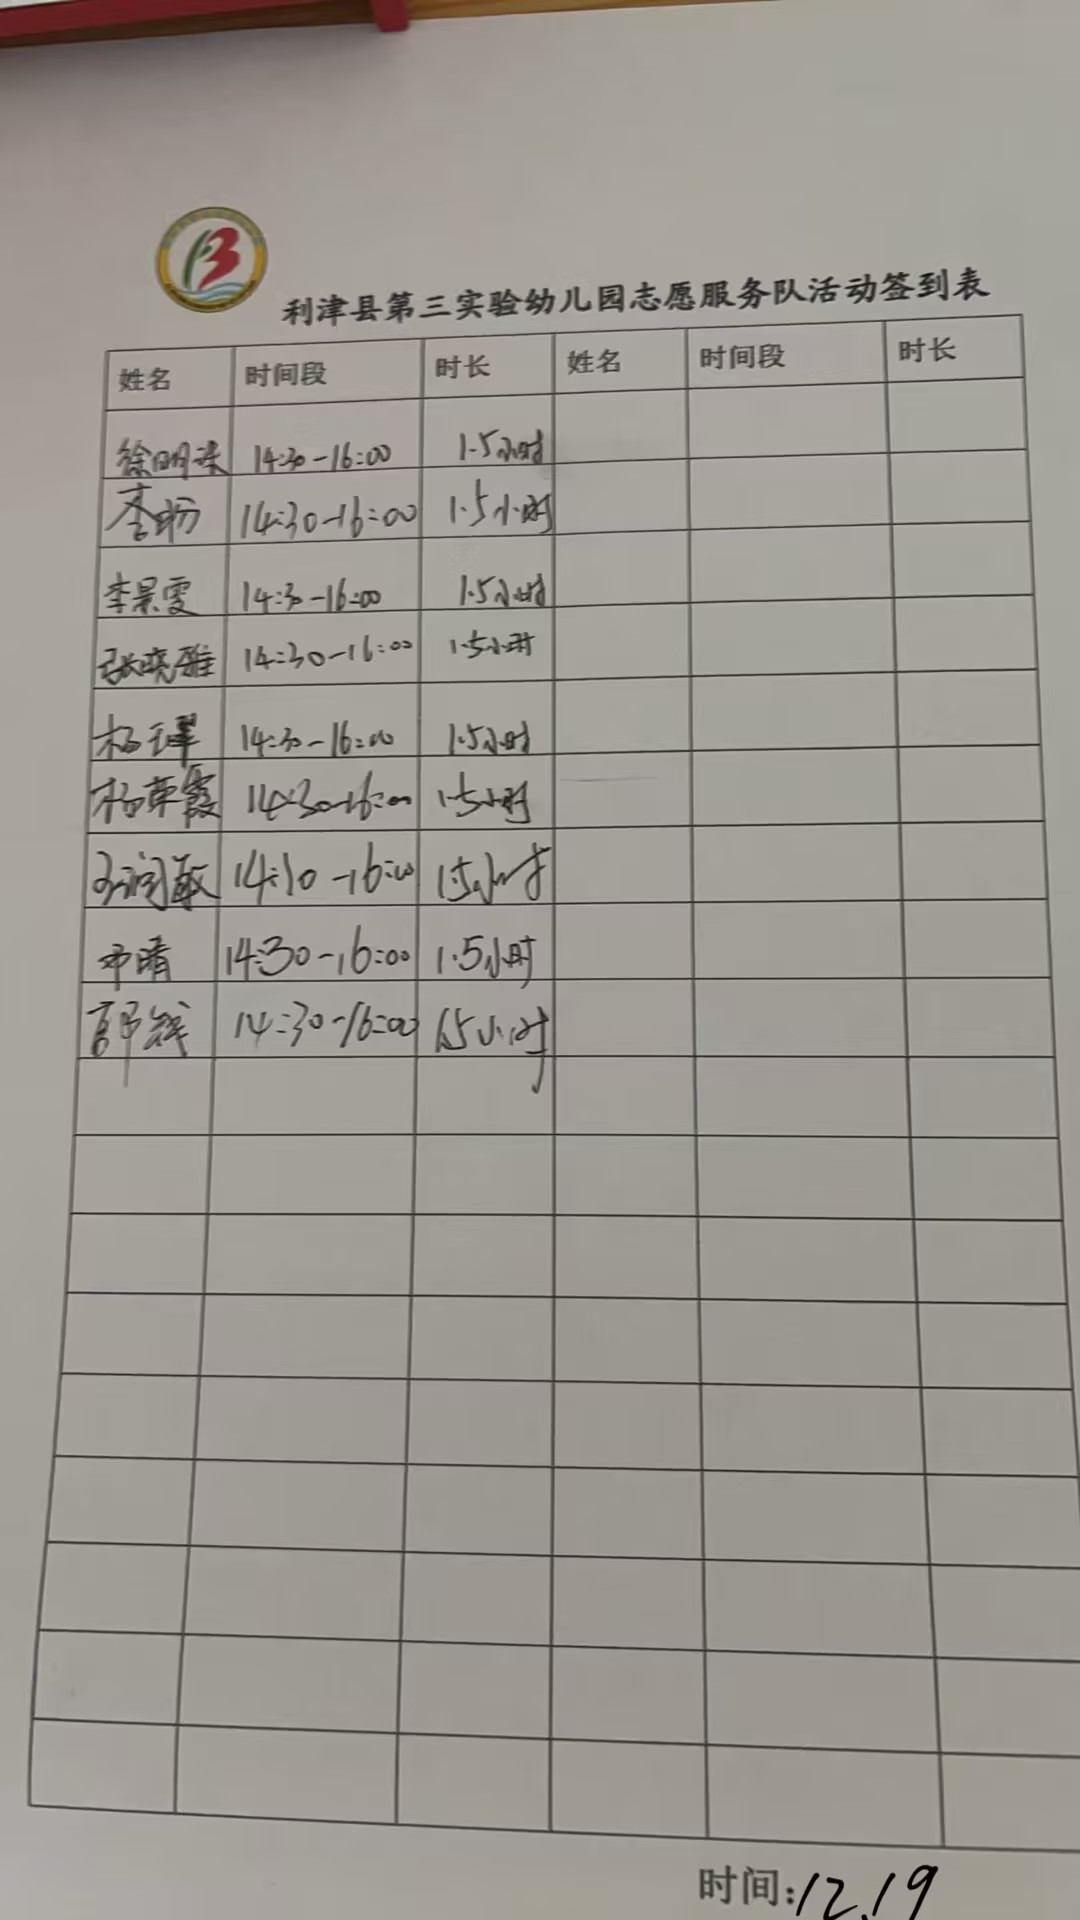 利津县第三实验幼儿园志愿服务队活动签到表
姓名 时间段 时长 姓名 时间段 时长
徐明珠 14:30-16:00 1.5小时
李盼 14:30-16:00 1.5小时
李景雯 14:30-16:00 1.5小时
张晓雅 14:30-16:00 1.5小时
14:30-16:00 1.5小时
杨荣霞 14:30-16:00 1.5小时
14:30-16:00 1.5小时
邓晴 14:30-16:00 1.5小时
14:30-16:00 1.5小时
时间:12.19